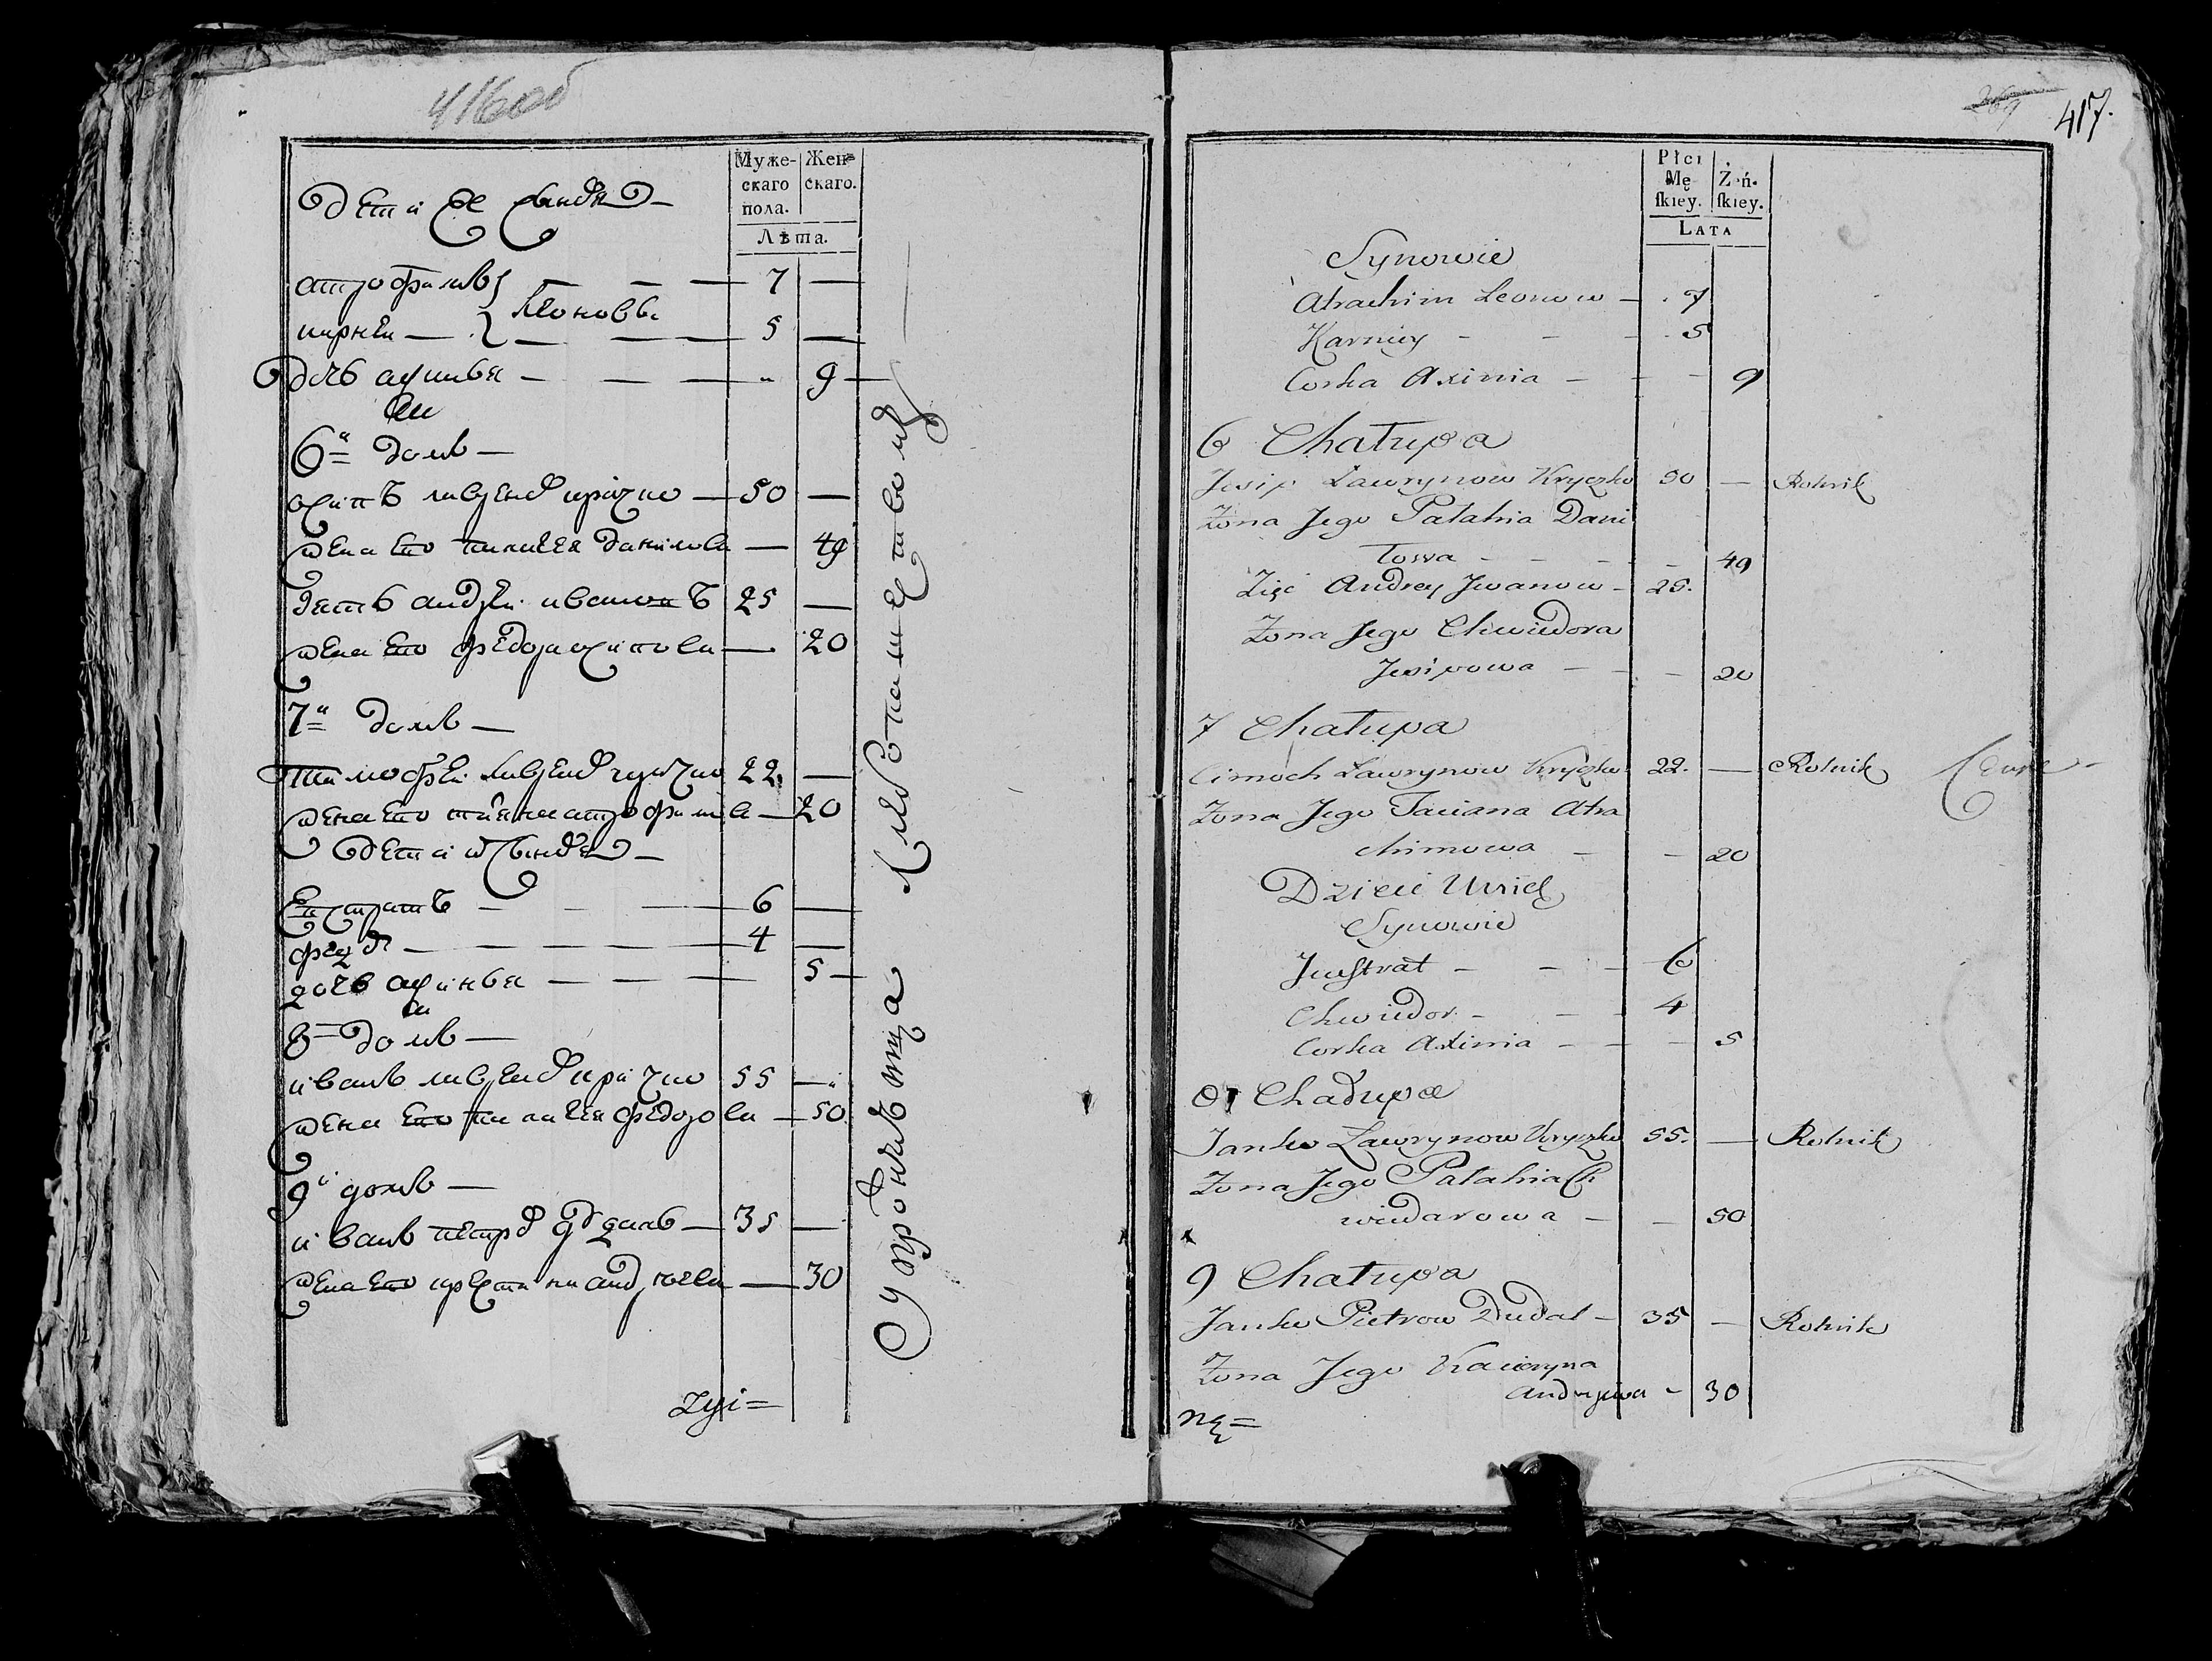 416об
Муже-
скаго
пола.
Жен=
скаго.
Лѣта.
дети ее сынове
атрофимъ } — — 7 —
Леоновы
корнеи — — — 5 —
дочь аксинья — — — 9
6й домъ —
осипъ лавренов кричко — 50 —
жена его палагея данилова — 49
зять андреи ивановъ 25 —
жена его федора осипова — 20
7й домъ —
тимофеи лавренов кричко 22 —
жена его татьяна атрофимова — 20
дети их сынове —
Евстратъ — — — 6 —
федор — — — — 4 —
дочь аксинья — — — 5
8й домъ —
иванъ лавренов кричко 55 —
жена его палагея федорова — 50
9й домъ —
иванъ петров дудаль — 35 —
жена его кристина андреева — 30
упражняются хлебопашествомъ
269
417.
Płci
Mę
ſkiey.
Żeń.
ſkiey.
LATA
Synowie
Atrachim Leonow — 7
Karniey - - - 5
Corka Axinia - - - 9
6 Chałupa
Jesip Ławrynow Kryczko 50 — Rolnik
Żona Jego Pałahia Dani
łowa - - - - 49
Zięć Andrey Jwanow - 25.
Żona Jego Chwiedora
Jesipowa - - - 20
7 Chałupa
Cimoch Ławrynow Kryczko 22. — Rolnik
Żona Jego Taciana Atra
chimowa - - 20
Dzieci Urich
Synowie
Jewstrat - - - 6
Chwiedor - - - 4
Corka Axinia - - - 5
8 Chałupa
Janko Ławrynow Kryczko 55. — Rolnik
Żona Jego Pałahia Ch
wiedarowa - - 50
9 Chałupa
Janko Pietrow Dudal - 35 — Rolnik
Żona Jego Kacieryna
Andrejewa - 30